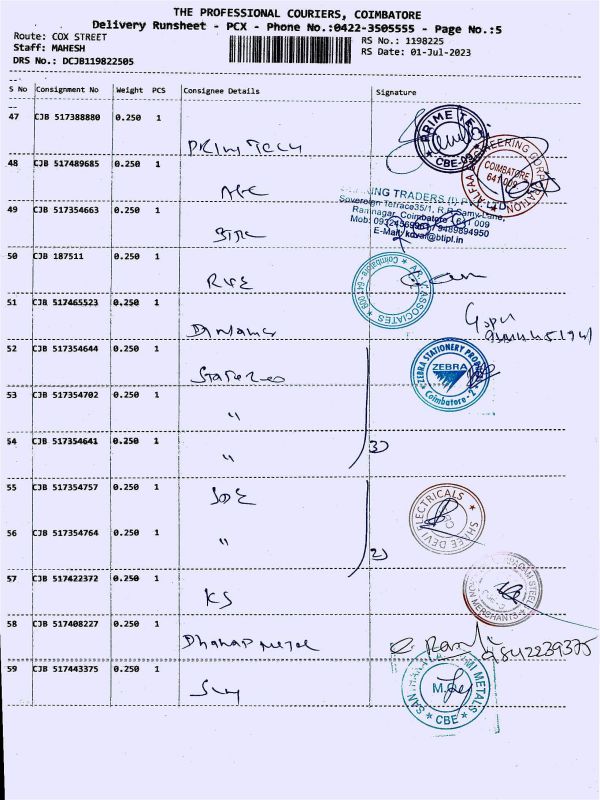 THE PROFESSIONAL COURIERS, COIMBATORE
Delivery Runsheet - PCX - Phone No.:0422-3505555 - Page No.:5
Route: COX STREET RS No.: 1198225
Staff: MAHESH RS Date: 01-Jul-2023
DRS No.: DCJB119822505
S No Consignment No Weight PCS Consignee Details Signature
47 CJB 517388880 0.250 1
PRIME TECH
CBE-09
ENGINEERING CORPORATION
COIMBATORE
641 009
48 CJB 517489685 0.250 1
TRADERS (I) PVT LTD
Sovereign Terrace35/1, R.R Samy Lane,
Ramnagar, Coimbatore - 641 009
49 CJB 517354663 0.250 1
E-Mail: koval@btipl.in
50 CJB 187511 0.250 1
ASSOCIATES
Coimbatore - 641
51 CJB 517465523 0.250 1
Gopu
52 CJB 517354644 0.250 1
ZEBRA STATIONERY
ZEBRA
Coimbatore - 2
53 CJB 517354702 0.250 1
"
54 CJB 517354641 0.250 1
"
3)
55 CJB 517354757 0.250 1
SHREE DEVI ELECTRICALS
56 CJB 517354764 0.250 1
"
2)
57 CJB 517422372 0.250 1
KS
STEEL
MERCHANTS
58 CJB 517408227 0.250 1
9842239375
59 CJB 517443375 0.250 1
METALS
CBE